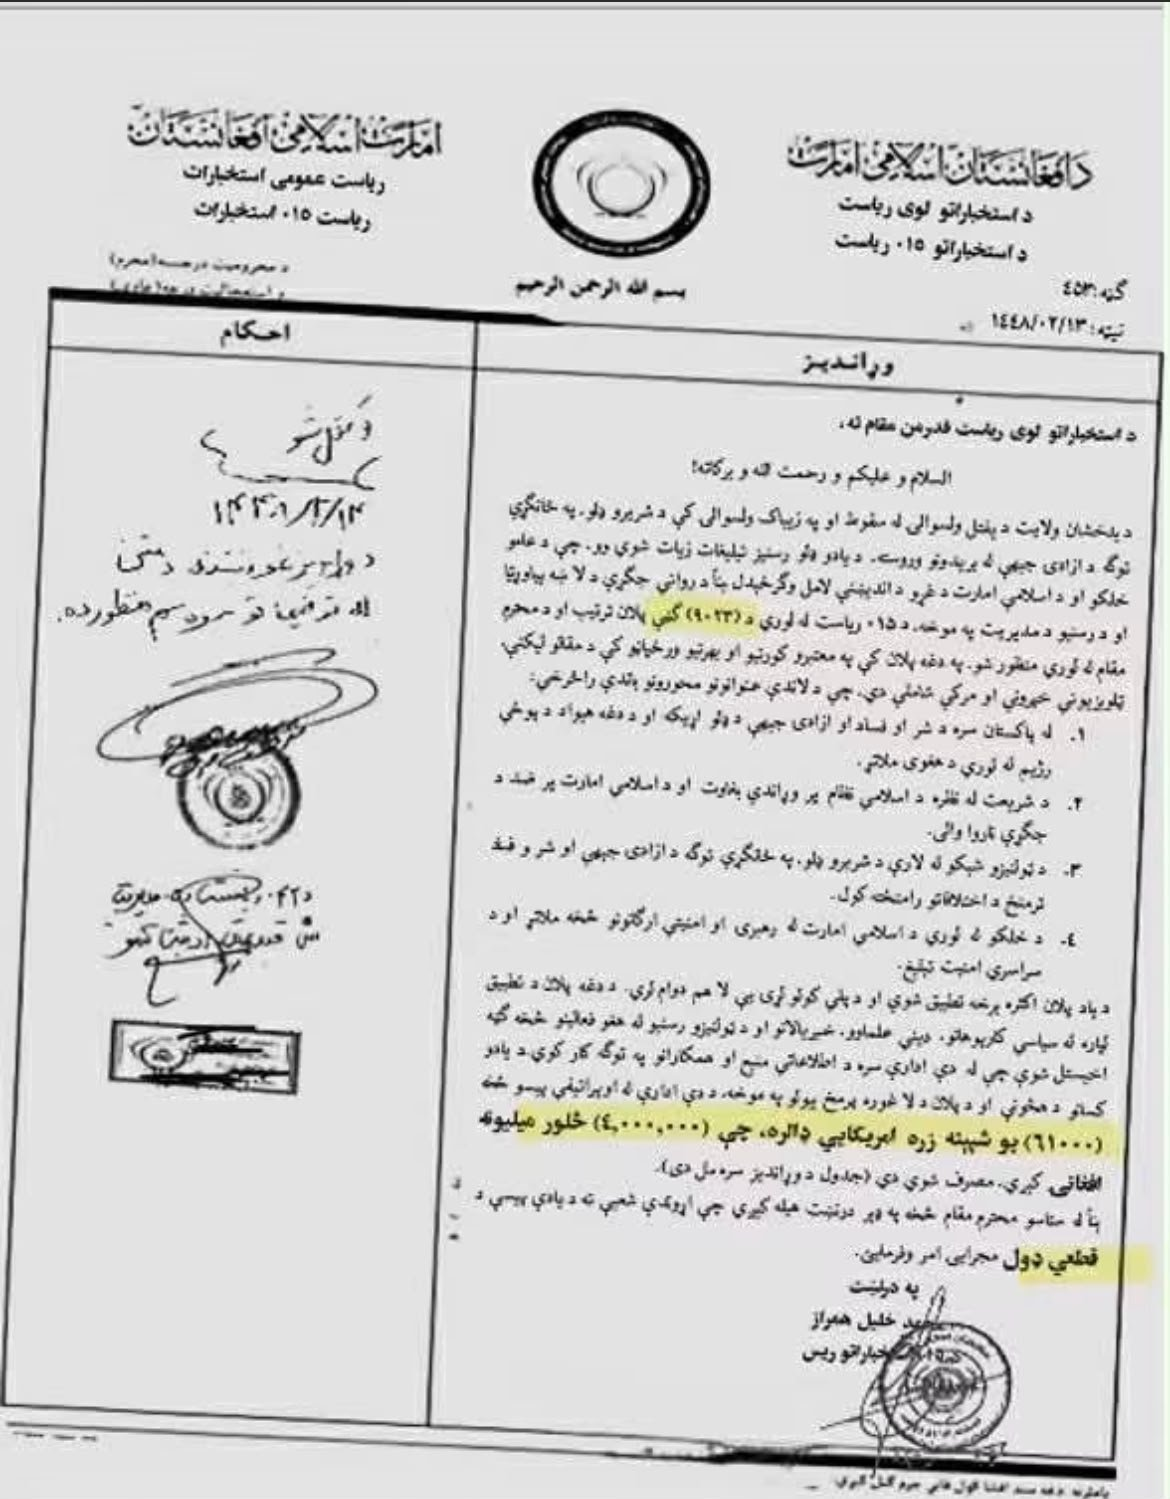 د افغانستان اسلامي امارت
د استخباراتو لوی ریاست
د استخباراتو ۰۱۵ ریاست
امارت اسلامی افغانستان
ریاست عمومی استخبارات
ریاست ۰۱۵ استخبارات
بسم الله الرحمن الرحیم
د محرومیت درجه: (محرم)
ګڼه: ٤٥٣
نیټه: ١٤٤٨/٠٢/١٣
وړاندیز
احکام
د استخباراتو لوی ریاست قدرمن مقام ته،
السلام و علیکم و رحمت الله و برکاته!
د بدخشان ولایت د یفتل ولسوالی له سقوط او په زیباک ولسوالی کې د شریرو ډلو، په ځانګړي
توګه د ازادی جبهې له بریدونو وروسته، د یادو ډلو رسنیز تبلیغات زیات شوي وو، چې د عامو
خلکو او د اسلامي امارت د غړو د اندېښنې لامل وګرځېدل بناً د رواني جګړې د لا ښه پیاوړتیا
او د رسنیو د مدیریت په موخه، د ۰۱۵ ریاست له لوري د (٩٠٢٣) ګڼې پلان ترتیب او د محترم
مقام له لوري منظور شو. په دغه پلان کې په معتبرو کورنیو او بهرنیو ورځپاڼو کې د مقالو لیکنې،
ټلویزیوني خبرونې او مرکې شاملې دي، چې د لاندې عنوانونو محورونو باندې راڅرخي:
١. له پاکستان سره د شر او فساد او ازادی جبهې د ډلو اړیکه او د دغه هېواد د پوځي
رژیم له لوري د هغوی ملاتړ.
٢. د شریعت له نظره د اسلامي نظام پر وړاندې بغاوت او د اسلامي امارت پر ضد د
جګړې ناروا والی.
٣. د ټولنیزو شبکو له لارې د شریرو ډلو، په ځانګړې توګه د ازادی جبهې او شر و فساد
ترمنځ د اختلافاتو رامنځته کول.
٤. د خلکو له لوري د اسلامي امارت له رهبرۍ او امنیتي ارګانونو څخه ملاتړ او د
سراسري امنیت تبلیغ.
د یاد پلان اکثره برخه تطبیق شوې او د پلي کولو لړۍ یې لا هم دوام لري. د دغه پلان د تطبیق
لپاره له سیاسي کارپوهانو، دیني علماوو، خبریالانو او د ټولنیزو رسنیو له هغو فعالینو څخه ګټه
اخیستل شوې چې له دې ادارې سره د اطلاعاتي منبع او همکارانو په توګه کار کوي. د یادو
کسانو د هڅونې او د پلان د لا غوره پرمخ بیولو په موخه، د دې ادارې له اوپراتیفي پیسو څخه
(٦١٠٠٠) یو شپېته زره امریکایي ډالره، چې (٤,٠٠٠,٠٠٠) څلور میلیونه
افغانی کیږي، مصرف شوي دي (جدول د وړاندیز سره مل دی).
بناً له ستاسو محترم مقام څخه په ډېر درنښت هیله کیږي چې اړوندې شعبې ته د یادې پیسې د
قطعي ډول مجرایی امر وفرمایئ.
په درنښت
خلیل همراز
د ۰۱۵ استخباراتو ریس